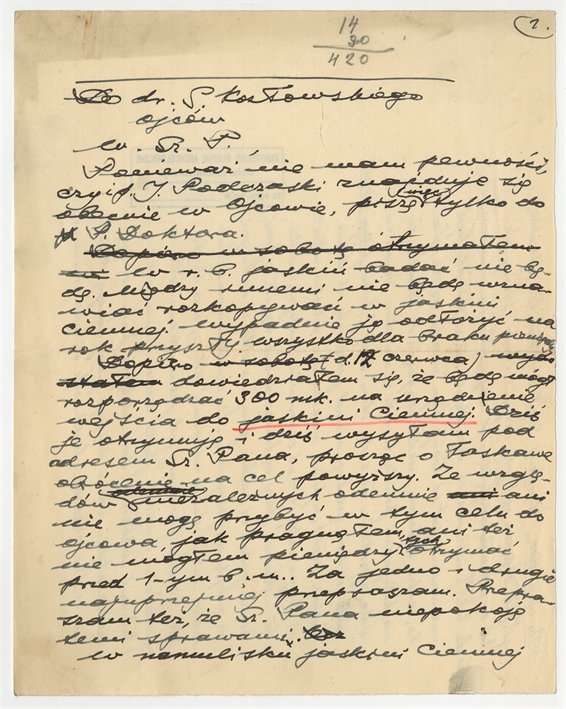 1.
14
30
420
Do dr. S. Kozłowskiego
Ojców
W. Sz. P.
Ponieważ nie mam pewności,
czy p. J. Podczaski znajduje się
obecnie w Ojcowie, piszę więc tylko do
P. Doktora.
Dopiero w sobotę otrzymałem
W r. b. jaskiń badać nie bę-
dę. Między innemi nie będę wzna-
wiać rozkopywań w jaskini
Ciemnej. Wypadnie ją odłożyć na
rok przyszły wszystko dla braku pieniędzy
Dopiero w sobotę (d. 12 czerwca)
dowiedziałem się, że będę mógł
rozporządzać 300 mk. na urządzenie
wejścia do jaskini Ciemnej. Dziś
je otrzymuję i dziś wysyłam pod
adresem Sz. Pana, prosząc o łaskawe
obrócenie na cel powyższy. Ze wzglę-
dów niezależnych odemnie ani
nie mogę przybyć w tym celu do
Ojcowa, jak pragnąłem, ani też
nie mogłem pieniędzy tych otrzymać
przed 1-ym b. m.. Za jedno i drugie
najuprzejmiej przepraszam. Przepra-
szam też, że Sz. Pana niepokoję
temi sprawami.
W namulisku jaskini Ciemnej